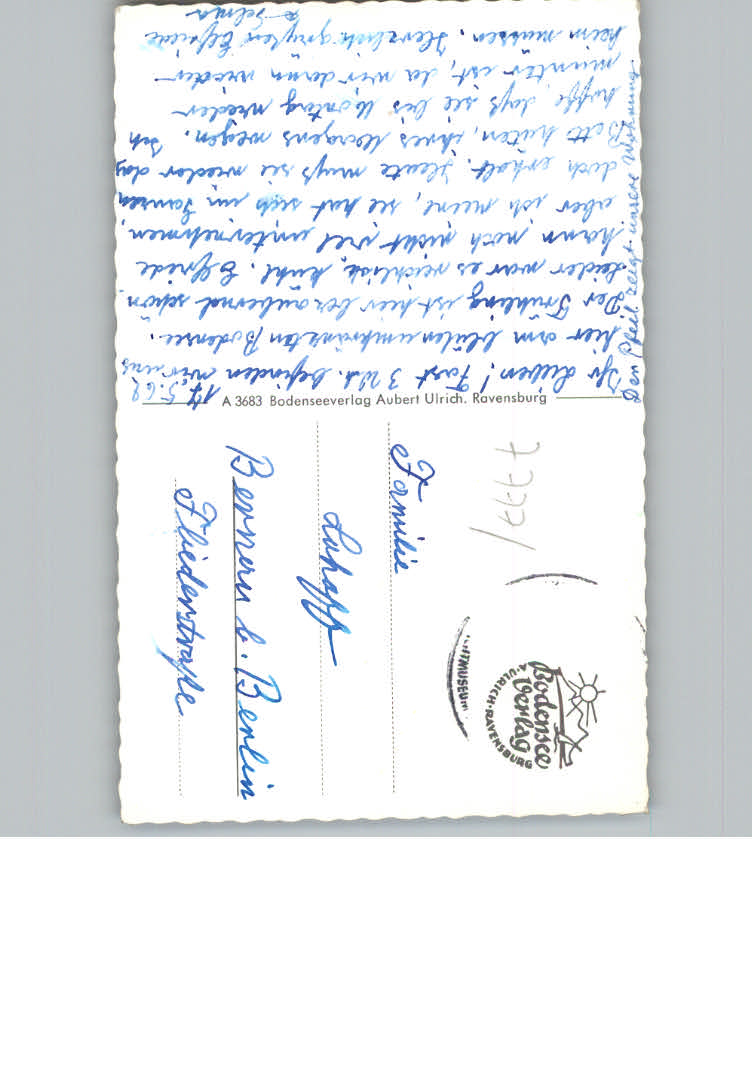 17.5.62
Ihr Lieben! Fast 3 Wch. befinden wir uns
hier am blütenumkränzten Bodensee.
Der Frühling ist hier bezaubernd schön.
Leider war es reichlich kühl. Elfriede
kann noch nicht viel unternehmen,
aber ich meine, sie hat sich im Ganzen
doch erholt. Heute muß sie wieder das
Bett hüten, ihres Magens wegen. Ich
hoffe, daß sie bis Montag wieder
munter ist, da wir dann wieder
heim müssen. Herzlich grüßen Elfriede
& Selma
Den Pfeil zeigt unsere Wohnung
A 3683 Bodenseeverlag Aubert Ulrich, Ravensburg
Familie
Bernau b. Berlin
Fliederstraße
Bodensee
Verlag
A. ULRICH · RAVENSBURG